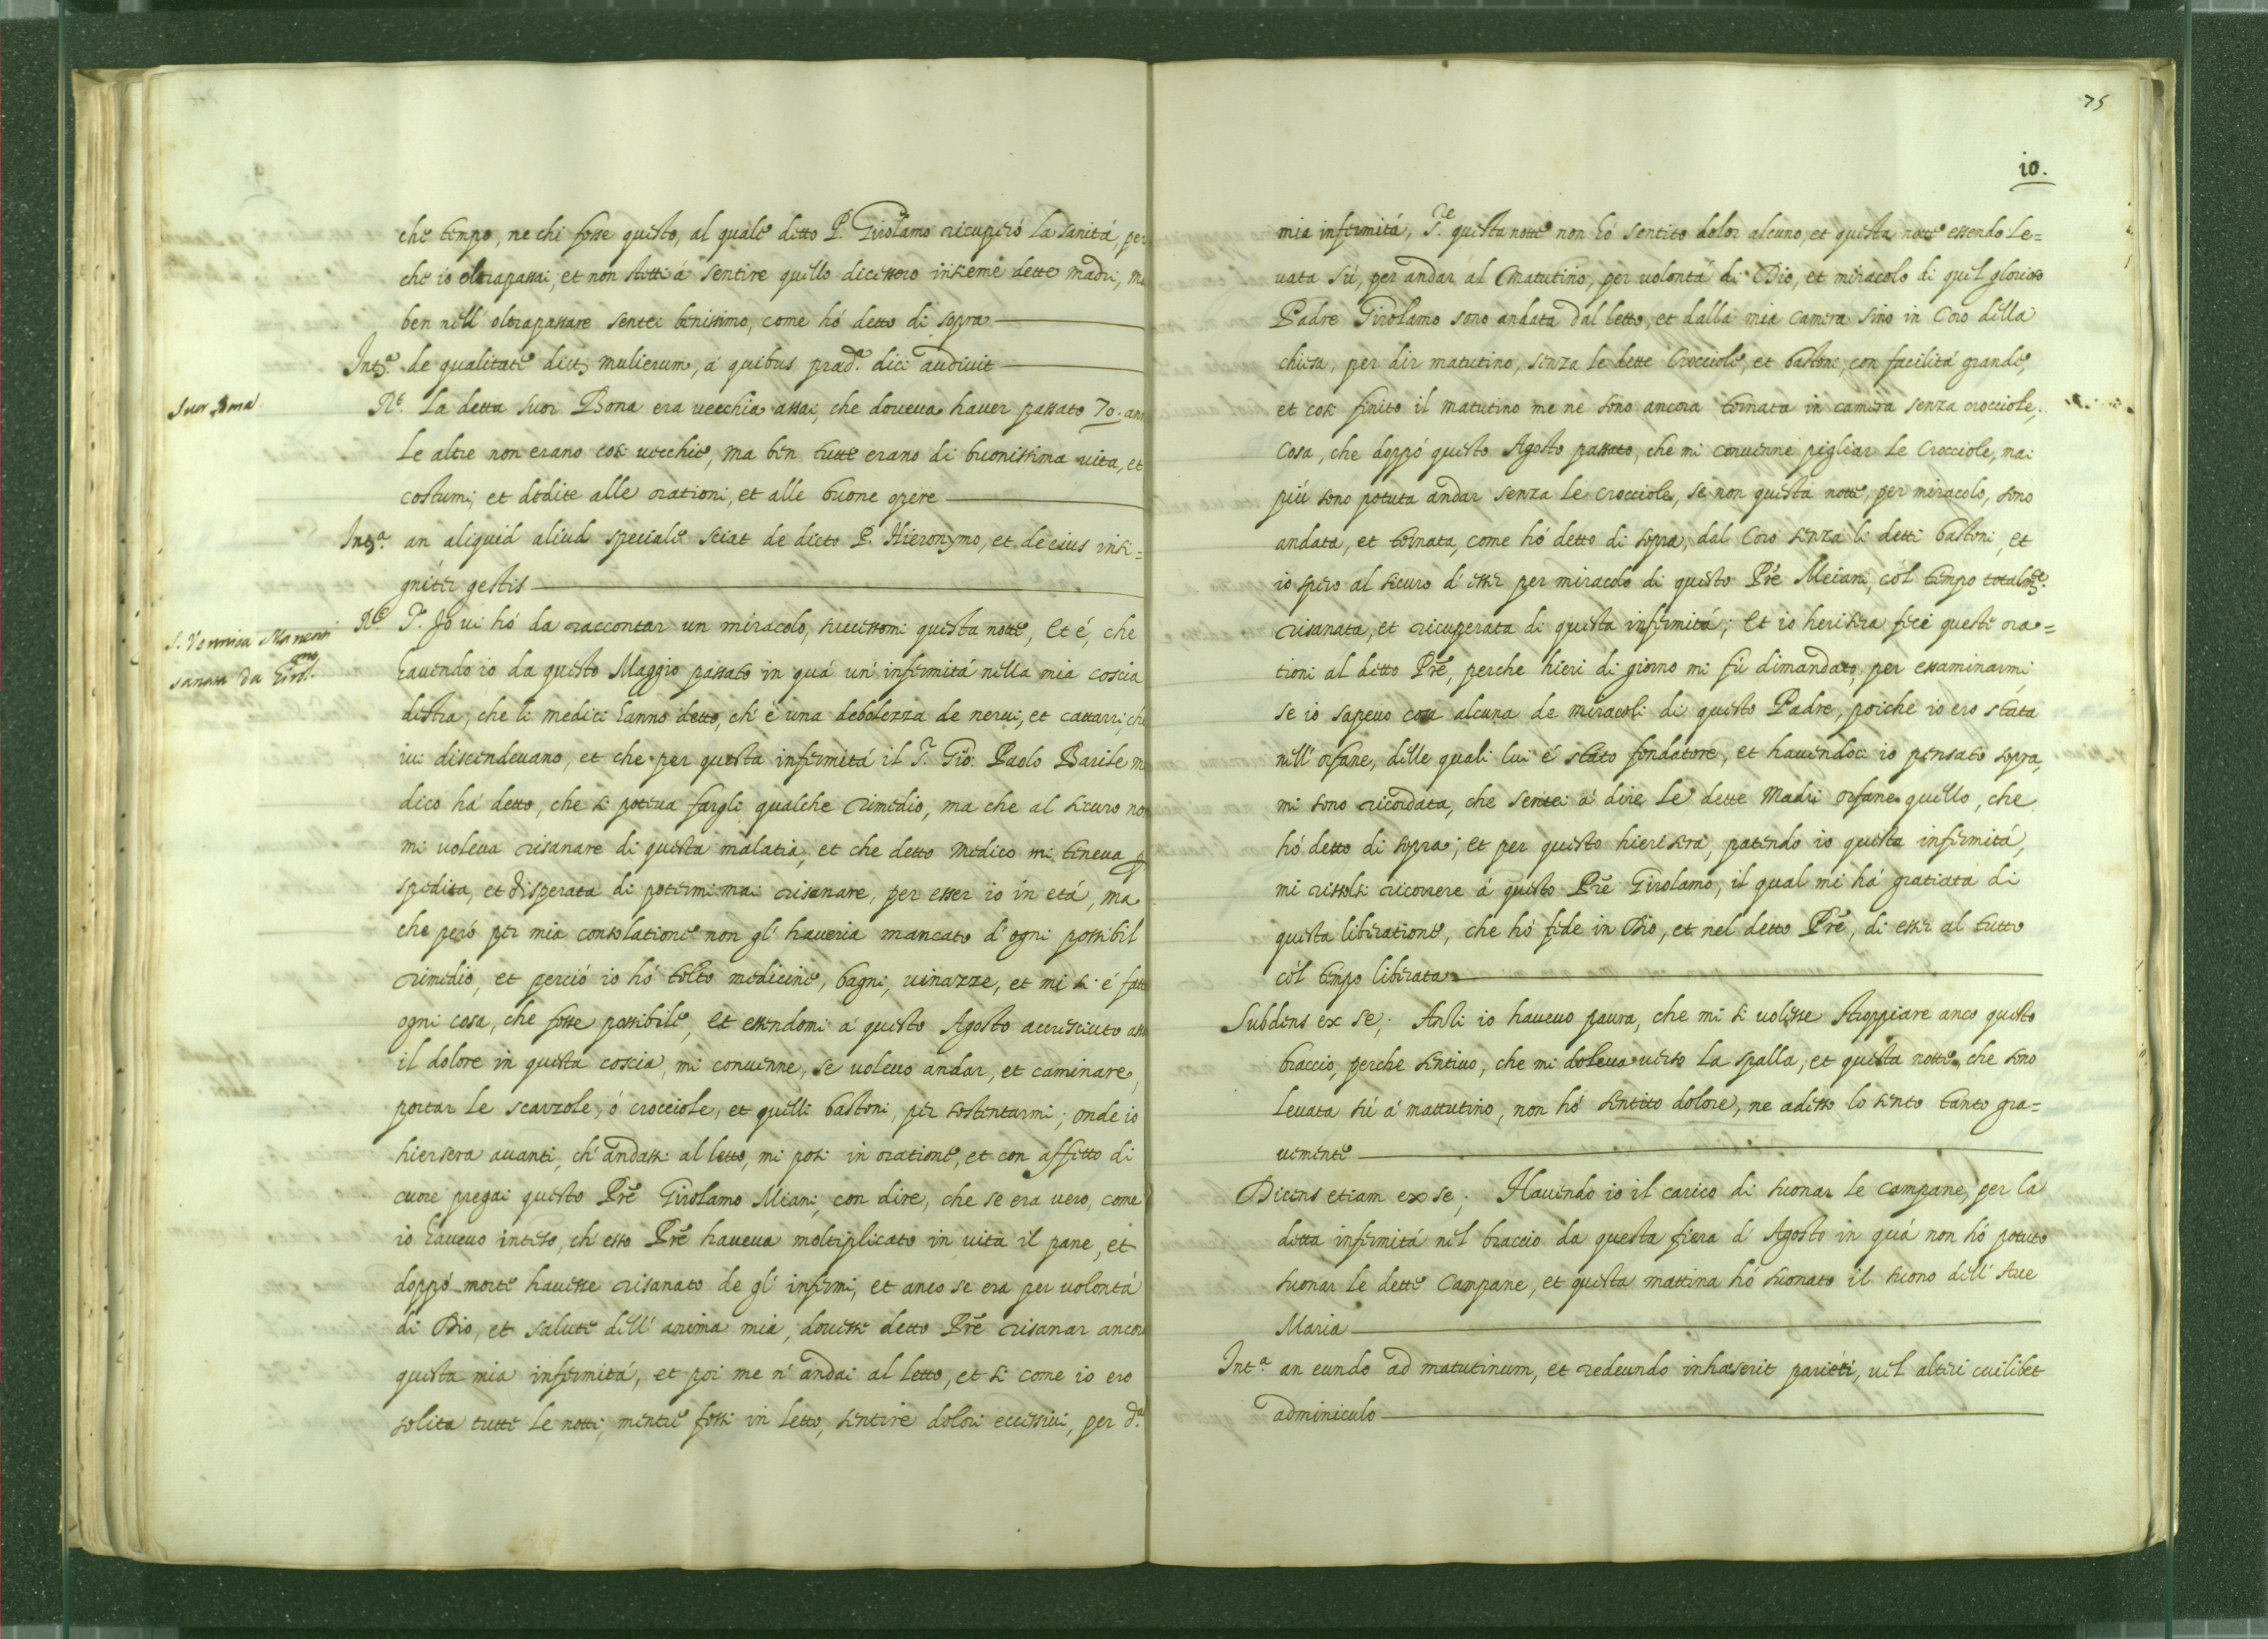 che tempo, ne chi fosse questo, al quale detto P. Girolamo ricuperó la sanitá, per
che io oltrapassai, et non stetti á sentire quello dicessero insieme dette madri, ma
ben nell' oltrapassare sentei benissimo, come hó detto di sopra
Intª. de qualitate dictȝ mulierum, á quibus prædª. dici audivit
Suor Bona.
Rᵗ. La detta suor Bona era vecchia assai, che doveva haver passato 70. ani
le altre non erano cosi vecchie, ma ben tutte erano di buonissima vita, et
costumi, et dedite alle orationi, et alle buone opere
Intª. an aliquid aliud speciale sciat de dicto P. Hieronymo, et de eius insi=
gniter gestis
S. Veronica Manenti
sanata da Girolᵐᵒ.
Rᵗ. Sʳ. Io vi hó da raccontar un miracolo, successomi questa notte, et é, che
havendo io da questo Maggio passato in quá un' infermitá nella mia coscia
destra, che li medici hanno detto, ch' é una debolezza de nervi, et cattarri, che
ivi discendevano, et che per questa infermitá il Sʳ. Gio: Paolo Barile me
dico há detto, che si poteva fargli qualche rimedio, ma che al sicuro no
mi voleva risanare di questa malatia, et che detto medico mi teneva p
spedita, et disperata di potermi mai risanare, per esser io in etá, ma
che peró per mia consolatione non gl' haveria mancato d' ogni possibil
rimedio, et perció io hó tolto medicine, bagni, vinazze, et mi si é fatto
ogni cosa, che fosse possibile, et essendomi á questo Agosto accresciuto assai
il dolore in questa coscia, mi convenne, se volevo andar, et caminare,
portar le scavzole, ó crocciole, et quelli bastoni, per sostentarmi; onde io
hiersera avanti, ch' andassi al letto, mi posi in oratione, et con affetto di
cuore pregai questo Prē Girolamo Miani, con dire, che se era vero, come
io havevo inteso, ch' esso Prē haveva moltiplicato in vita il pane, et
doppó morte havesse risanato de gl' infermi, et anco se era per volontá
di Dio, et salute dell' anima mia, dovesse detto Prē risanar ancora
questa mia infermitá, et poi me n' andai al letto, et si come io ero
solita tutte le notti, mentre fossi in letto, sentire dolori eccessivi, per dª.
75
10.
mia infermitá, Sʳᵉ. questa notte non hó sentito dolor alcuno, et questa notte essendo le=
vata sú, per andar al Matutino, per volontá di Dio, et miracolo di quel glorioso
Padre Girolamo sono andata dal letto, et dalla mia camera sino in Coro della
chiesa, per dir matutino, senza le dette Crocciole, et bastoni, con facilitá grande,
et cosi finito il matutino me ne sono ancora tornata in camera senza crocciole,
cosa, che doppó questo Agosto passato, che mi convenne pigliar le Crocciole, mai
piú sono potuta andar senza le crocciole, se non questa notte, per miracolo, sono
andata, et tornata, come hó detto di sopra, dal Coro senza li detti bastoni, et
io spero al sicuro d' esser per miracolo di questo Prē Meiani, cól tempo totalmᵗᵉ.
risanata, et ricuperata di questa infermitá; et io herisera fece queste ora=
tioni al detto Prē, perche hieri di giorno mi fú dimandato, per essaminarmi,
se io sapevo cosa alcuna de miracoli di questo Padre, poiche io ero stata
nell' orfane, delle quali lui é stato fondatore, et havendoci io pensato sopra,
mi sono ricordata, che sentei á dire le dette Madri orfane quello, che
hó detto di sopra; et per questo hierisera, patendo io questa infermitá,
mi rissolsi ricorrere á questo Prē Girolamo, il qual mi há gratiata di
questa liberatione, che hó fede in Dio, et nel detto Prē, di esser al tutto
cól tempo liberata
Subdens ex se; Ansi io havevo paura, che mi si volesse stroppiare anco questo
braccio, perche sentivo, che mi doleva verso la spalla, et questa notte, che sono
levata sú á mattutino, non hó sentito dolore, ne adesso lo sento tanto gra=
vemente
Dicens etiam ex se; Havendo io il carico di suonar le campane, per la
detta infermitá nel braccio da questa fiera d' Agosto in quá non hó potuto
suonar le dette Campane, et questa mattina hó suonato il suono dell' Ave
Maria
Intª. an eundo ad matutinum, et redeundo inhæserit parieti, vel alteri cuilibet
adminiculo